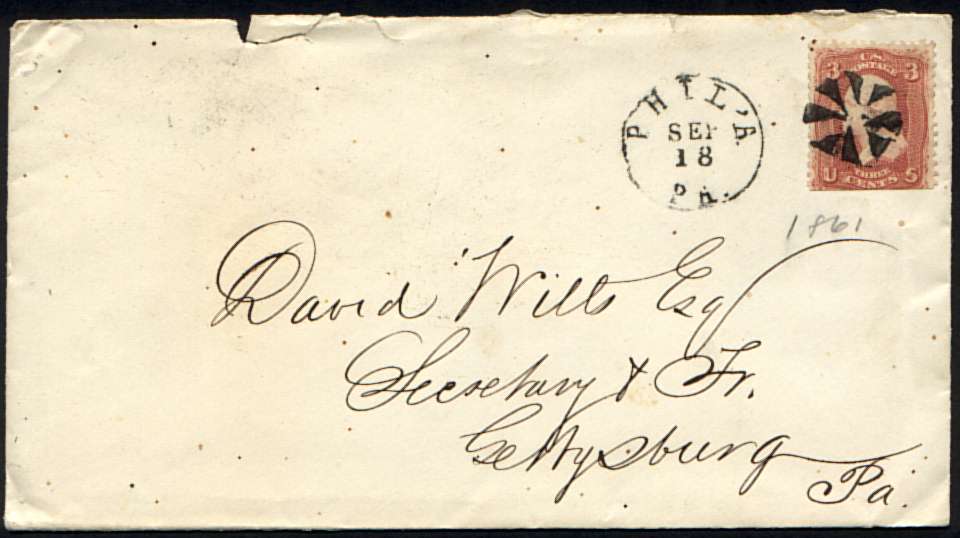 U.S.
POSTAGE
3 3
THREE
U CENTS S
PHIL'A
SEP
18
PA.
1861
David Wills Esq
Secretary & Tr.
Gettysburg
Pa.